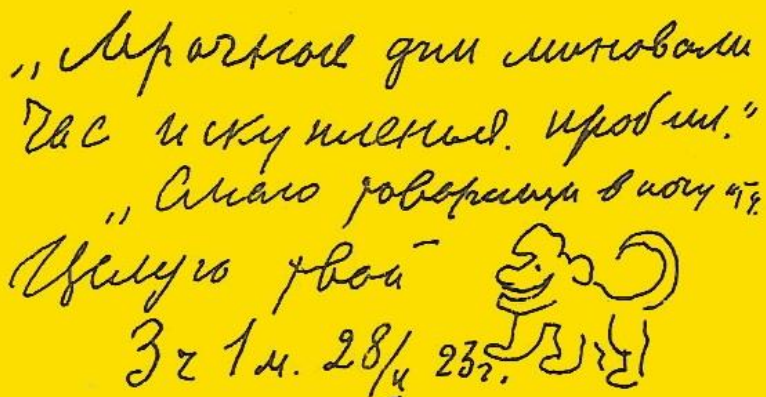 „Мрачные дни миновали
Час искупленья. пробил.“
„Смело товарищи в ногу и т.д.
Целую твой
3 ч 1 м. 28/II 23 г.